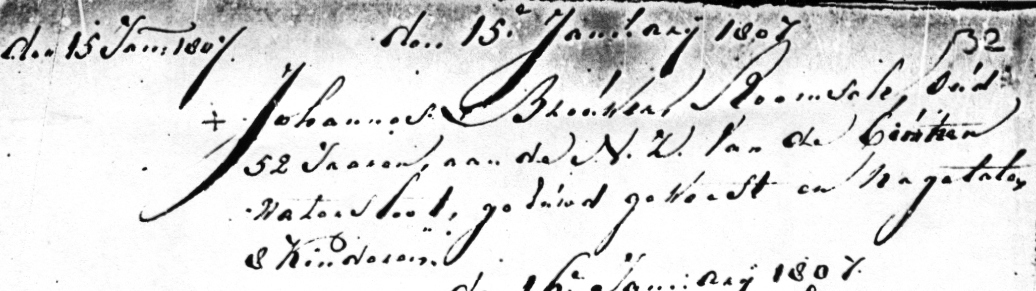 den 15 Jann 1807. den 15e Januarij 1807. 52
+ Johannes Broukers Roomsch, oud
52 Jaaren, aan de N. Z. van de
Waterstoot, getúwd geweest en Nagelaten
8 Kinderen
den 16e Januarij 1807.